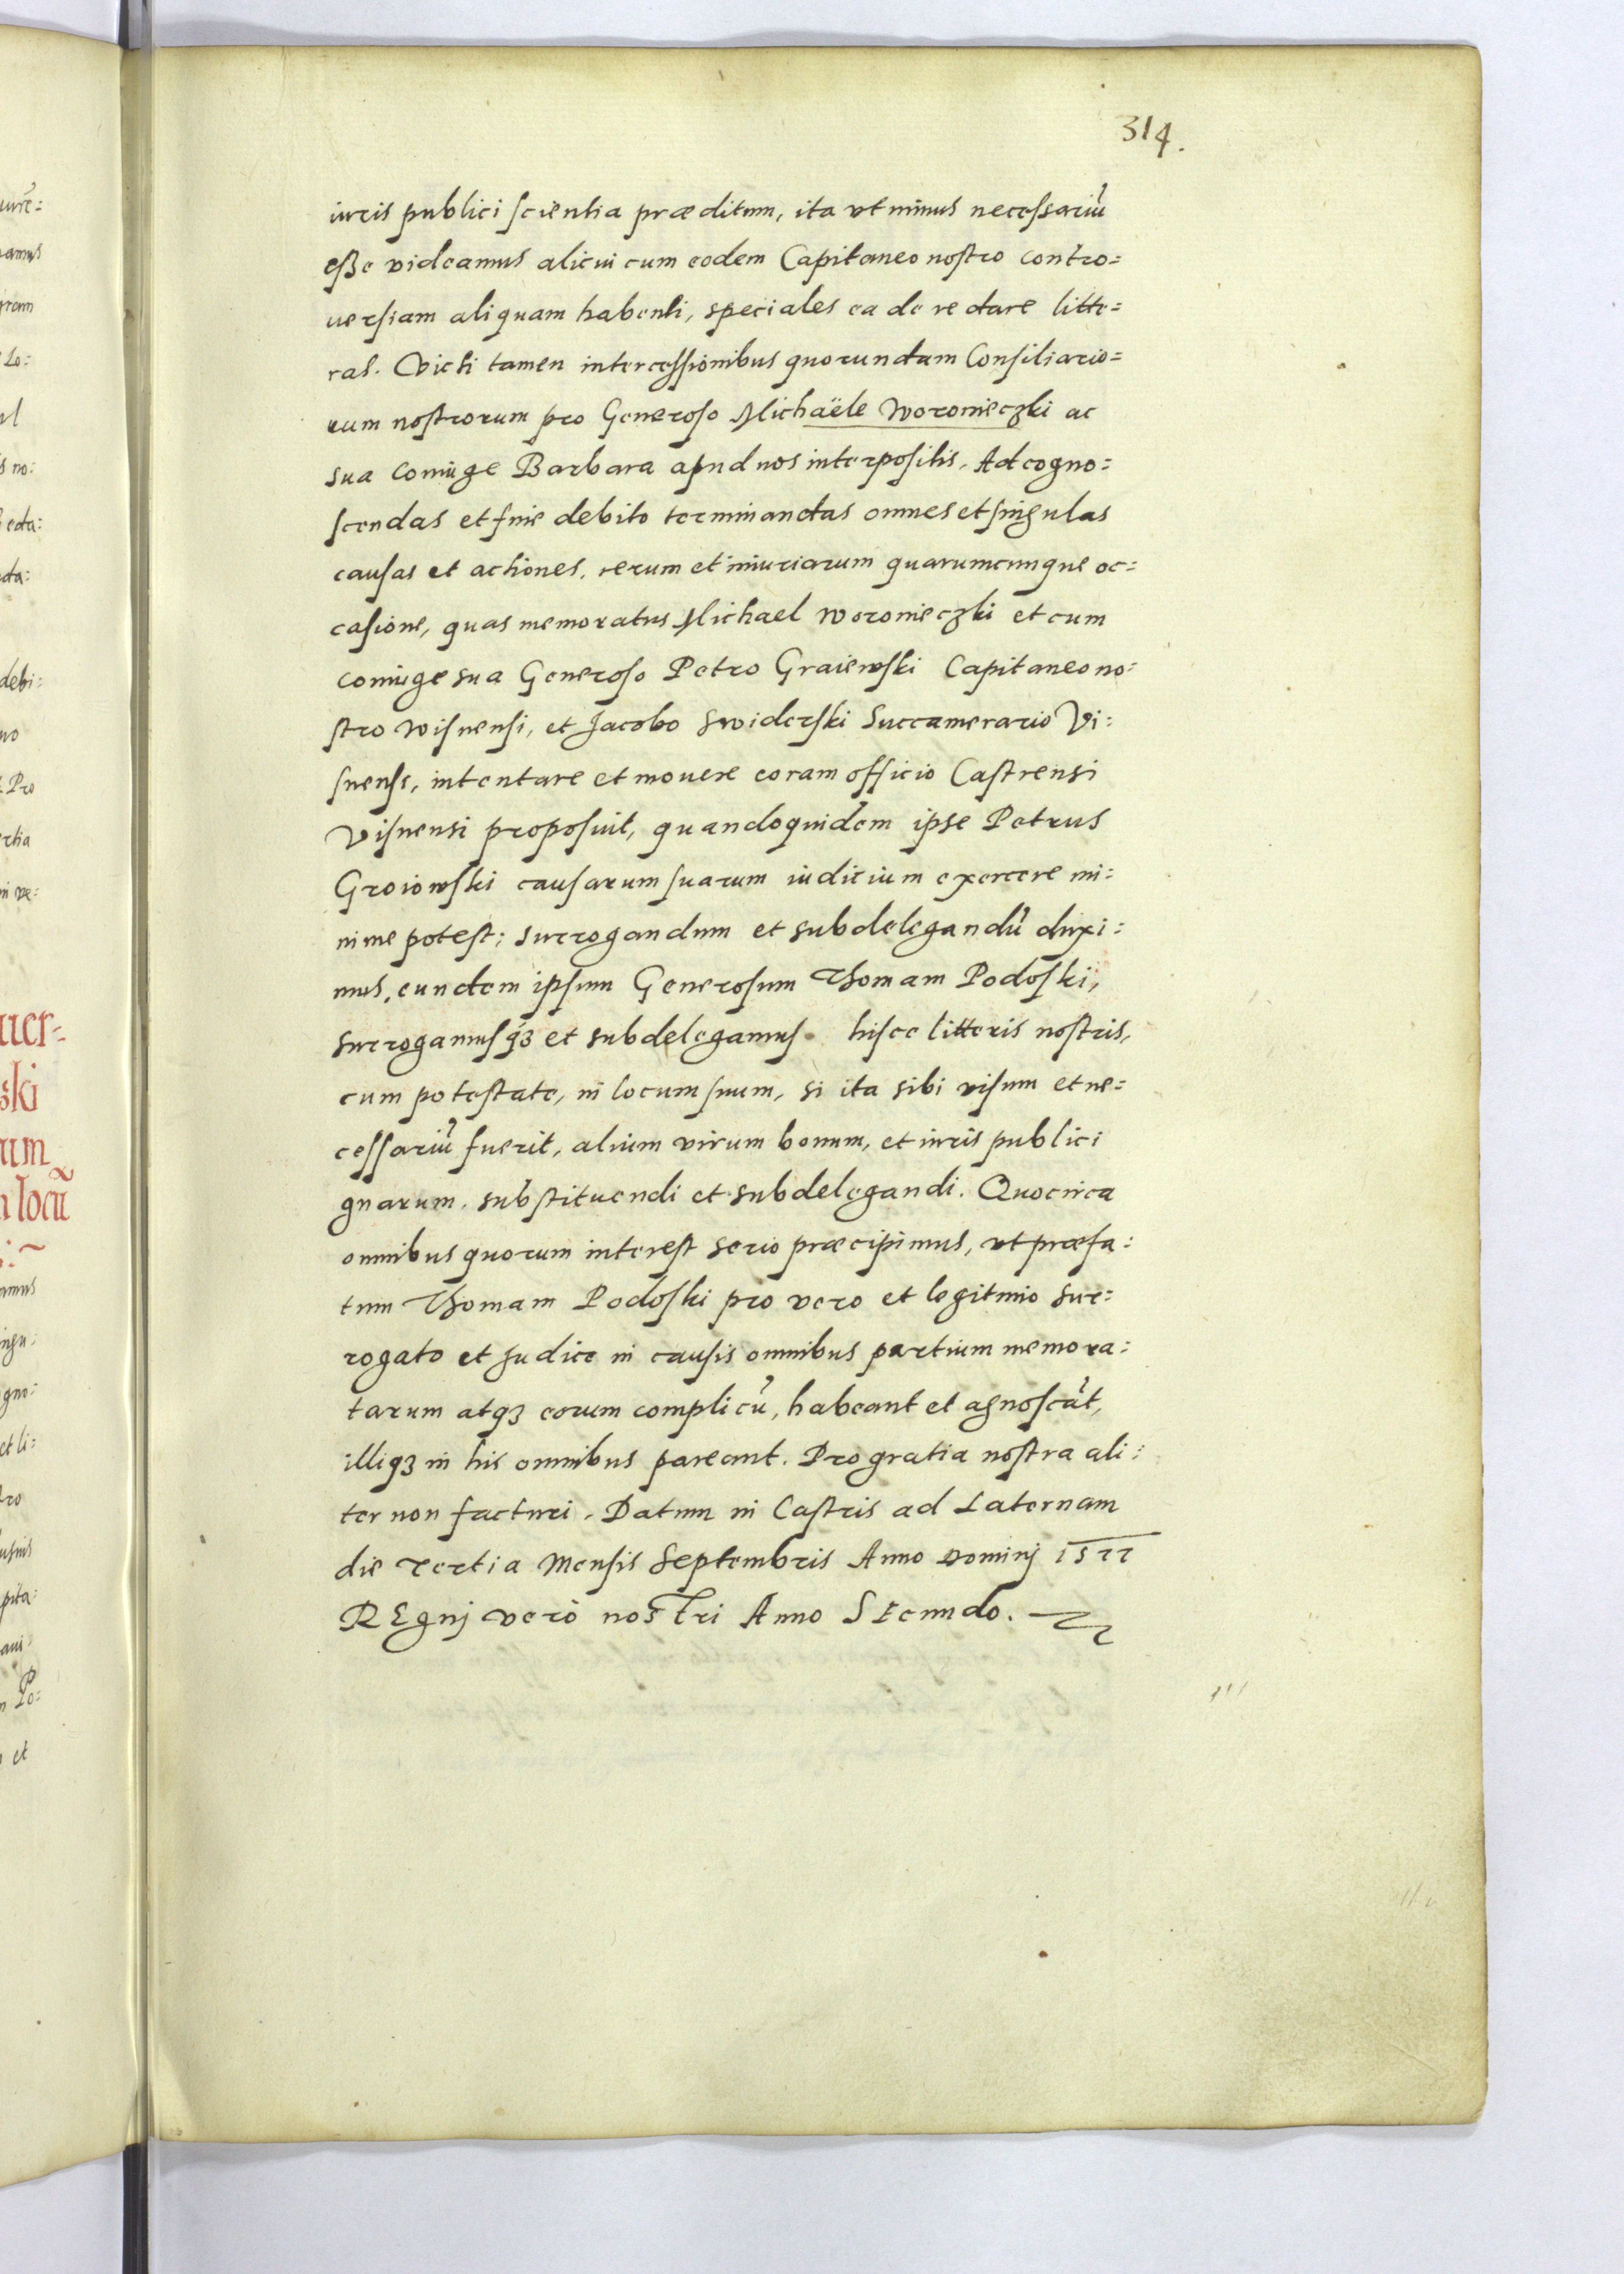 314.
iuris publici scientia præditum, ita vt minus necessariũ
esse videamus alicui cum eodem Capitaneo nostro contro=
uersiam aliquam habenti, speciales ea de re dare litte=
ras. Victi tamen intercessionibus quorundam Consiliario=
rum nostrorum pro Generoso Michaële Woronieczki ac
sua coniuge Barbara apud nos interpositis, Ad cogno=
scendas et fine debito terminandas omnes et singulas
causas et actiones, rerum et iniuriarum quarumcunque oc=
casione, quas memoratus Michael Woronieczki et cum
coniuge sua Generoso Petro Graiewski Capitaneo no=
stro Wisnensi, et Jacobo Swiderski Succamerario Vi=
snensi, intentare et mouere coram officio Castrensi
Visnensi proposuit, quandoquidem ipse Petrus
Groiowski causarum suarum iudicium exercere mi=
nime potest; surrogandum et subdelegandũ duxi=
mus, eundem ipsum Generosum Thomam Podoski,
surrogamusqȝ et subdelegamus hisce litteris nostris,
cum potestate, in locum suum, si ita sibi visum et ne=
cessariũ fuerit, alium virum bonum, et iuris publici
gnarum, substituendi et subdelegandi. Quocirca
omnibus quorum interest serio præcipimus, vt præfa=
tum Thomam Podoski pro vero et legitimo sur=
rogato et Judice in causis omnibus partium memora=
tarum atqȝ eorum complicũ, habeant et agnoscãt,
illiqȝ in his omnibus pareant. Pro gratia nostra ali=
ter non facturi. Datum in Castris ad Laternam
die tertia Mensis Septembris Anno Dominj 1577
REgnj verò nostri Anno SEcundo.